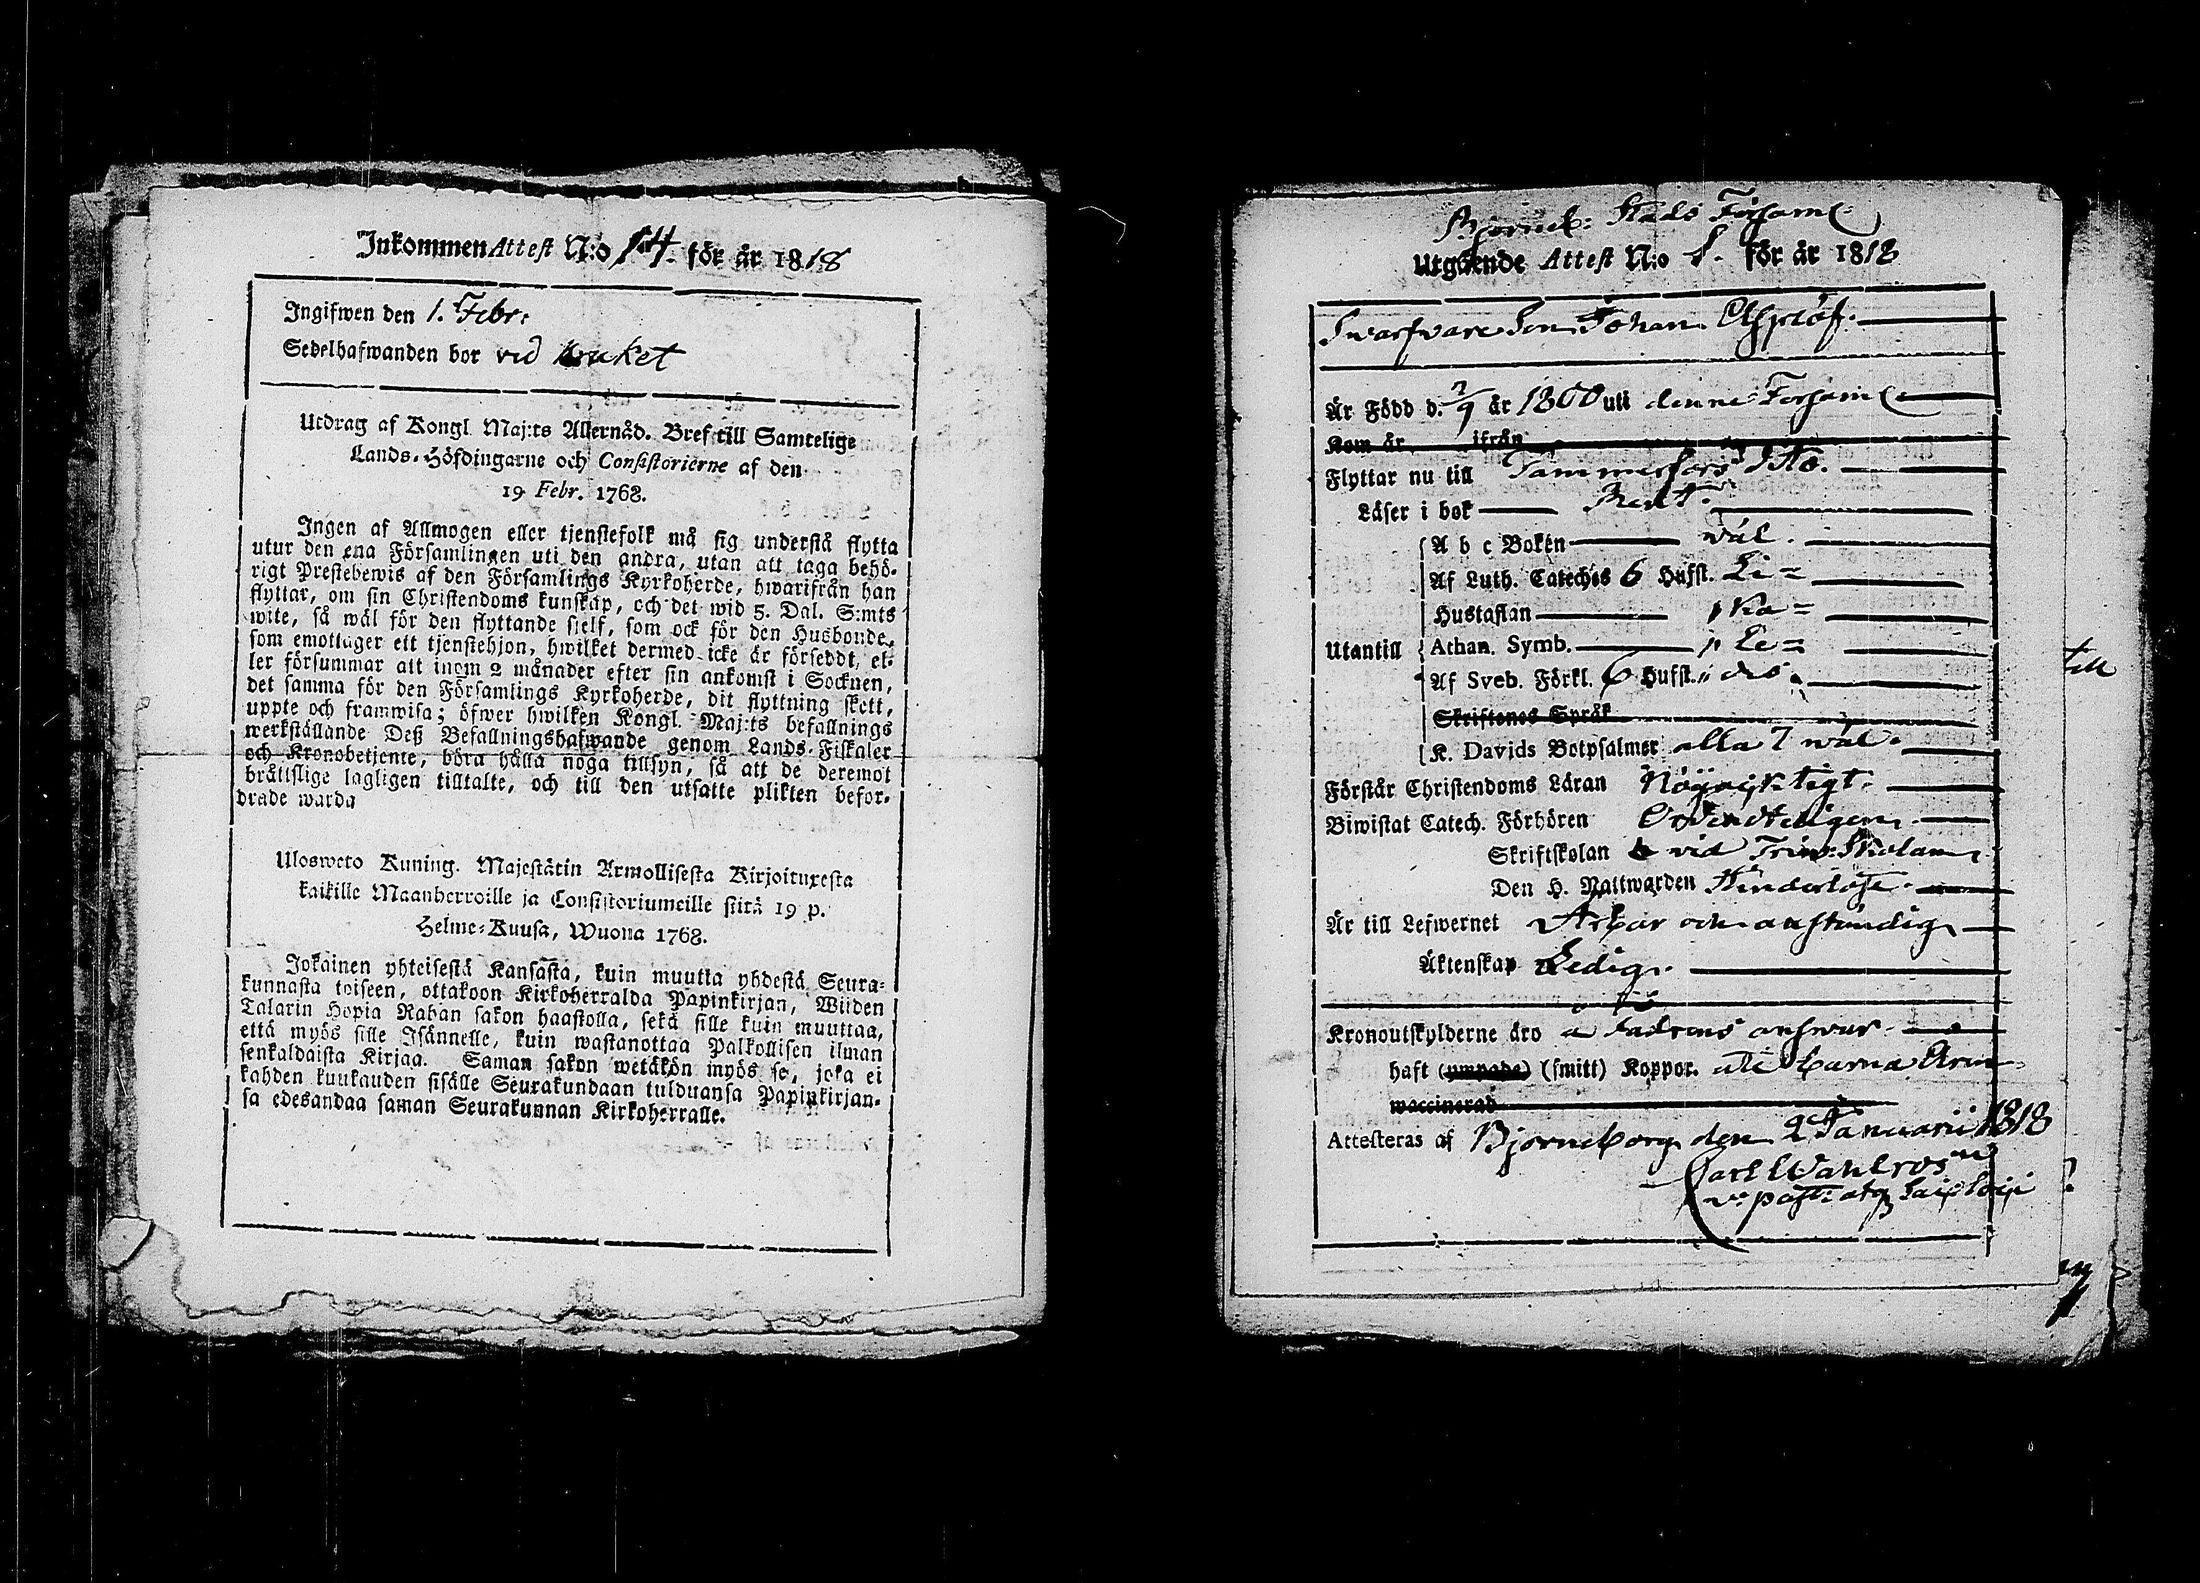 Inkommen Attest N:o 14. för år 1818
Ingifwen den 1. Febr:
Sedelhafwanden bor vid bruket
Utdrag af Kongl. Maj:ts Allernåd. Bref till Samtelige
Lands-Höfdingarne och Consistorierne af den
19 Febr. 1768.
Ingen af Allmogen eller tjenstefolk må sig understå flytta
utur den ena Församlingen uti den andra, utan att taga behö-
rigt Prestebewis af den Församlings Kyrkoherde, hwarifrån han
flyttar, om sin Christendoms kunskap, och det wid 5. Dal. S:mts
wite, så wäl för den flyttande sjelf, som ock för den Husbonde,
som emottager ett tjenstehjon, hwilket dermed icke är försedt, el-
ler försummar att inom 2 månader efter sin ankomst i Socknen,
det samma för den Församlings Kyrkoherde, dit flyttning skett,
uppte och framwisa; öfwer hwilken Kongl. Maj:ts befallnings
werkställande Deß Befallningshafwande genom Lands-Fiskaler
och Kronobetjente, böra hålla noga tillsyn, så att de deremot
bråttslige lagligen tilltalte, och till den utsatte plikten befor-
drade warda
Ulosweto Kuning. Majestätin Armollisesta Kirjoituxesta
kaikille Maanherroille ja Consistoriumeille siitä 19 p.
Helme-Kuusa, Wuona 1768.
Jokainen yhteisestä Kansasta, kuin muutta yhdestä Seura-
kunnasta toiseen, ottakoon Kirkoherralda Papinkirjan, Wiiden
Talarin Hopia Rahan sakon haastolla, sekä sille kuin muuttaa,
että myös sille Isännelle, kuin wastanottaa Palkollisen ilman
senkaldaista Kirjaa. Saman sakon wetäkön myös se, joka ei
kahden kuukauden sisälle Seurakundaan tulduansa Papinkirjan-
sa edesandaa saman Seurakunnan Kirkoherralle.
Björneb: Stads Församl
Utgående Attest N:o 1. för år 1818
Swarfvare Son Johan
Är Född d. 2/9 år 1800 uti denne Församl
Kom år ifrån
Flyttar nu till Tammerfors
Läser i bok Rent.
A b c Boken wäl.
Af Luth. Cateches 6 Hufst.
Hustaflan
Utantill Athan. Symb.
Af Sveb. Förkl. 6 Hufst.
Skriftenes Språk
K. Davids Botpsalmer alla 7 wäl.
Förstår Christendoms Läran Nöjaktigt.
Biwistat Catech. Förhören Ordenteligen
Skriftskolan vid Triv: Skolan
Den H. Nattwarden Hinderlöst.
Är till Lefwernet Ärbar och anständig
Äktenskap Ledig.
Kronoutskylderne äro å fadrens answar.
haft (ympade) (smitt) Koppor. uti barna Åren
waccinerad
Attesteras af Björneborg den 2 Januarii 1818
Carl Wahlroos
v. past:
till